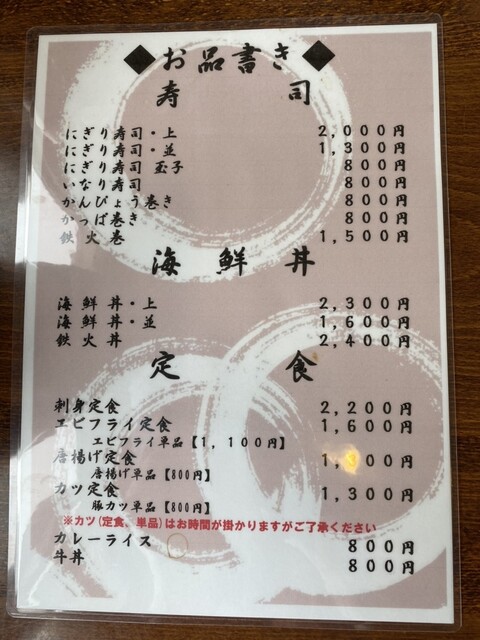 ◆お品書き◆
寿司
にぎり寿司・上 2,000円
にぎり寿司・並 1,300円
にぎり寿司 玉子 800円
いなり寿司 800円
かんぴょう巻き 800円
かっぱ巻き 800円
鉄火巻 1,500円
海鮮丼
海鮮丼・上 2,300円
海鮮丼・並 1,600円
鉄火丼 2,400円
定食
刺身定食 2,200円
エビフライ定食 1,600円
エビフライ単品【1,100円】
唐揚げ定食
唐揚げ単品【800円】
カツ定食 1,300円
豚カツ単品【800円】
※カツ(定食、単品)はお時間が掛かりますがご了承ください
カレーライス 800円
牛丼 800円